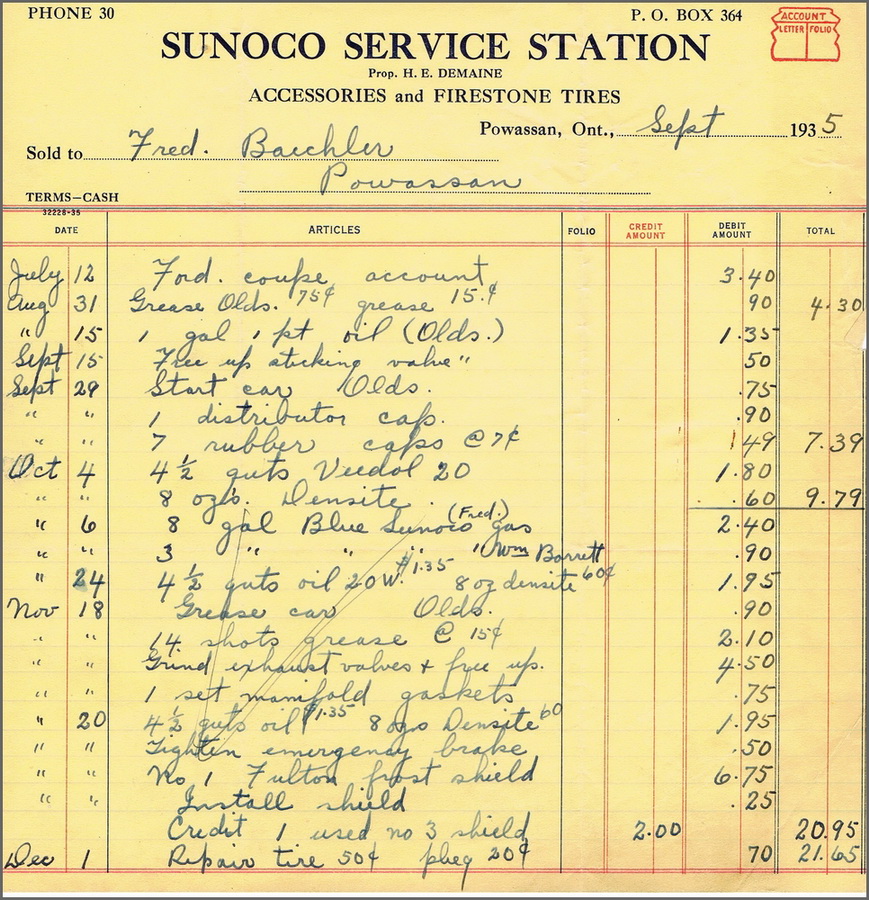 PHONE 30
P. O. BOX 364
ACCOUNT
LETTER FOLIO
SUNOCO SERVICE STATION
Prop. H. E. DEMAINE
ACCESSORIES and FIRESTONE TIRES
Powassan, Ont., Sept 1935
Sold to Fred. Baechler
Powassan
TERMS—CASH
32228-35
DATE ARTICLES FOLIO CREDIT AMOUNT DEBIT AMOUNT TOTAL
July 12 Ford. coupe account 3.40
Aug 31 Grease Olds. 75¢ grease 15.¢ 90 4.30
" 15 1 gal 1 pt oil (Olds.) 1.35
Sept 15 Free up sticking valve " 50
Sept 29 Start car Olds. .75
" " 1 distributor cap. .90
" " 7 rubber caps @ 7¢ 49 7.39
Oct 4 4 1/2 quts Veedol 20 1.80
" " 8 ozs. Densite. .60 9.79
" 6 8 gal Blue Sunoco (Fred.) gas 2.40
" " 3 " " " " Wm Barrett .90
" 24 4 1/2 quts oil 20W. $1.35 8 oz densite 60¢ 1.95
Nov 18 Grease car Olds. .90
" " 14 shots grease @ 15¢ 2.10
" " Grind exhaust valves + free up. 4.50
" " 1 set manifold gaskets .75
" 20 4 1/2 quts oil $1.35 8 ozs Densite 60 1.95
" " Tighten emergency brake .50
" " No 1 Fulton frost shield 6.75
" " Install shield .25
Credit 1 used no 3 shield 2.00 20.95
Dec 1 Repair tire 50¢ 20¢ 70 21.65